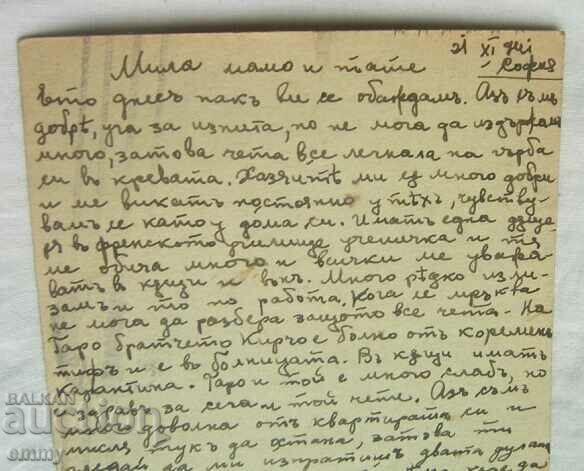 21 XI 941
София
Мила мамо и тате
Ето днесъ пакъ ви се обаждамъ. Азъ съмь
добрѣ, уча за изпита, но не мога да издържамъ
много, затова чета все легнала на гърба
си въ кревата. Хазяитѣ ми сѫ много добри
и ме викатъ постоянно у тѣхъ, чувству-
вамъ се като у дома си. Иматъ една дъще-
ря въ френското училище ученичка и тя
ме обича много и всички ме уважа-
ватъ въ кѫщи и вънъ. Много рѣдко изли-
замъ и то по работа. Кога се мръква
не мога да разбера защото все чета. На
Гаро братчето Кирчо е болно отъ коремень
тифъ и е въ болницата. Въ кѫщи иматъ
карантина. Гаро и той е много слабъ, но
и здравъ за сега и той чете. Азъ съмъ
много доволна отъ квартирата си и
мисля тукъ да остана, затова ти
да ми изпратишъ двата
БАЛКАН
auction
emmy